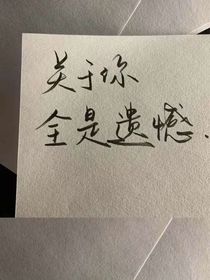 关于你
全是遗憾.